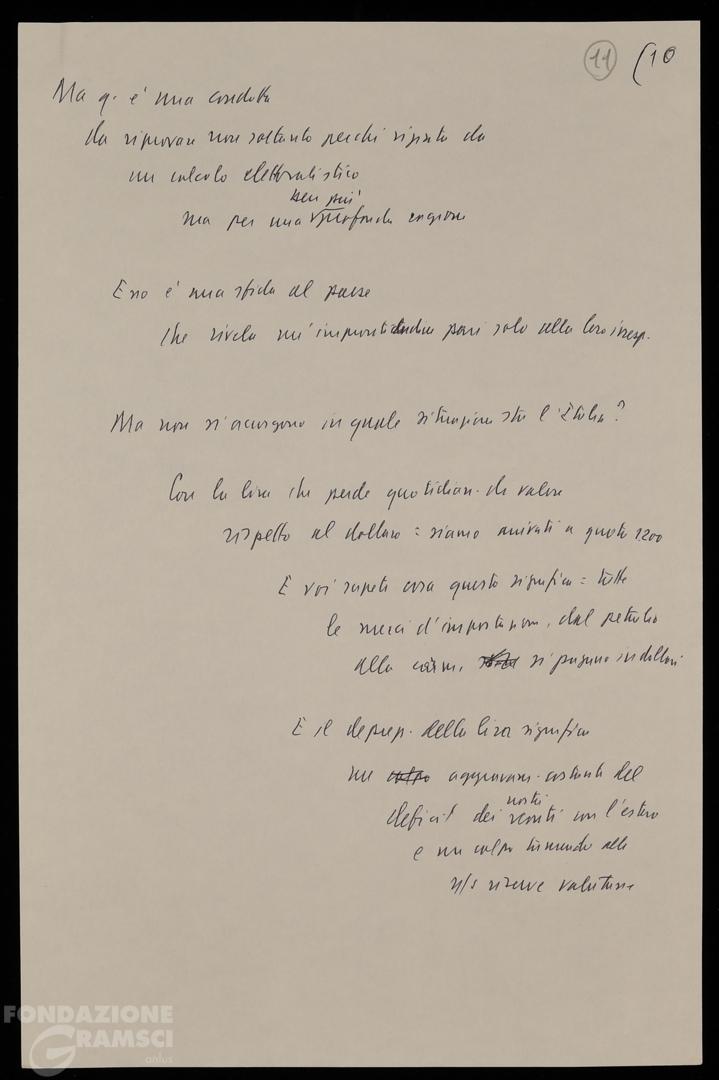 11 (10
Ma q. è una condotta
da riprovare non soltanto perché ispirata da
un calcolo elettoralistico
ben più
ma per una profonda cagione
Esso è una sfida al paese
che rivela un'improntitudine pari solo alla loro irresp.
Ma non si accorgono in quale situazione sta l'Italia?
Con la lira che perde quotidian. di valore
rispetto al dollaro = siamo arrivati a quota 1200
E voi sapete cosa questo significa = tutte
le merci d'importazione, dal petrolio
alla carne, si pagano in dollari
E il deprez. della lira significa
un aggravam. costante del
nostri
deficit dei conti con l'estero
e un colpo tremendo alle
n/s riserve valutarie
FONDAZIONE
GRAMSCI
onlus